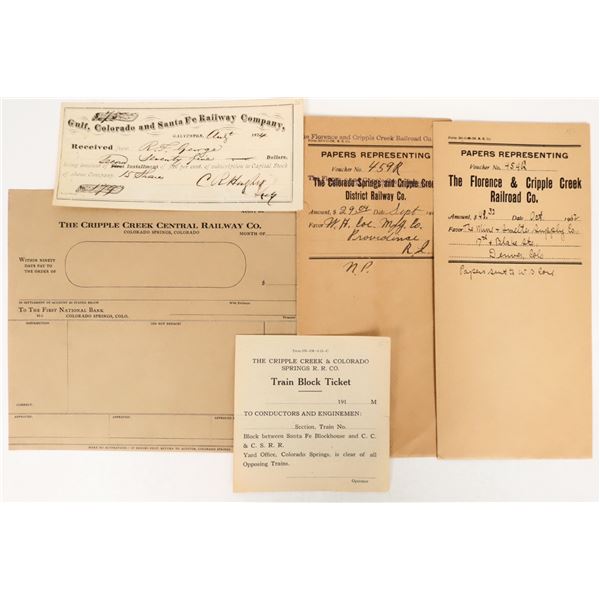 Gulf, Colorado and Santa Fe Railway Company,
GALVESTON,
Received from R. F. George
Second Seventy five Dollars,
being amount of Installment of subscription to Capital Stock
of above Company. 15 Shares
THE CRIPPLE CREEK CENTRAL RAILWAY CO.
COLORADO SPRINGS, COLORADO
MONTH OF
WITHIN NINETY
DAYS PAY TO
THE ORDER OF
$
IN SETTLEMENT OF ACCOUNT AS STATED BELOW
TO THE FIRST NATIONAL BANK
COLORADO SPRINGS, COLO.
DISTRIBUTION
DO NOT DETACH
CORRECT:
APPROVED:
APPROVED:
APPROVED
The Florence and Cripple Creek Railroad Co.
PAPERS REPRESENTING
Voucher No. 459R
The Colorado Springs and Cripple Creek
District Railway Co.
Amount, $ 29.04 Date Sept
Favor W. H. Coe Mfg. Co.
Providence
R. I.
N.P.
PAPERS REPRESENTING
Voucher No. 454R
The Florence & Cripple Creek
Railroad Co.
Amount, $ 48.33 Date Oct 190
Favor The Mine & Smelter Supply Co
17th & Blake Sts.
Denver, Colo
Papers sent to W S
THE CRIPPLE CREEK & COLORADO
SPRINGS R. R. CO.
Train Block Ticket
191 M
TO CONDUCTORS AND ENGINEMEN:
Section, Train No.
Block between Santa Fe Blockhouse and C. C.
& C. S. R. R.
Yard Office, Colorado Springs, is clear of all
Opposing Trains.
Operator